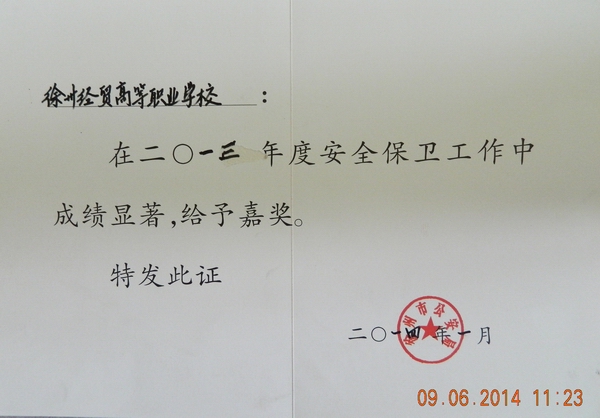 徐州经贸高等职业学校：
在二〇一三年度安全保卫工作中
成绩显著,给予嘉奖。
特发此证
徐州市公安局
二〇一四年一月
09.06.2014 11:23